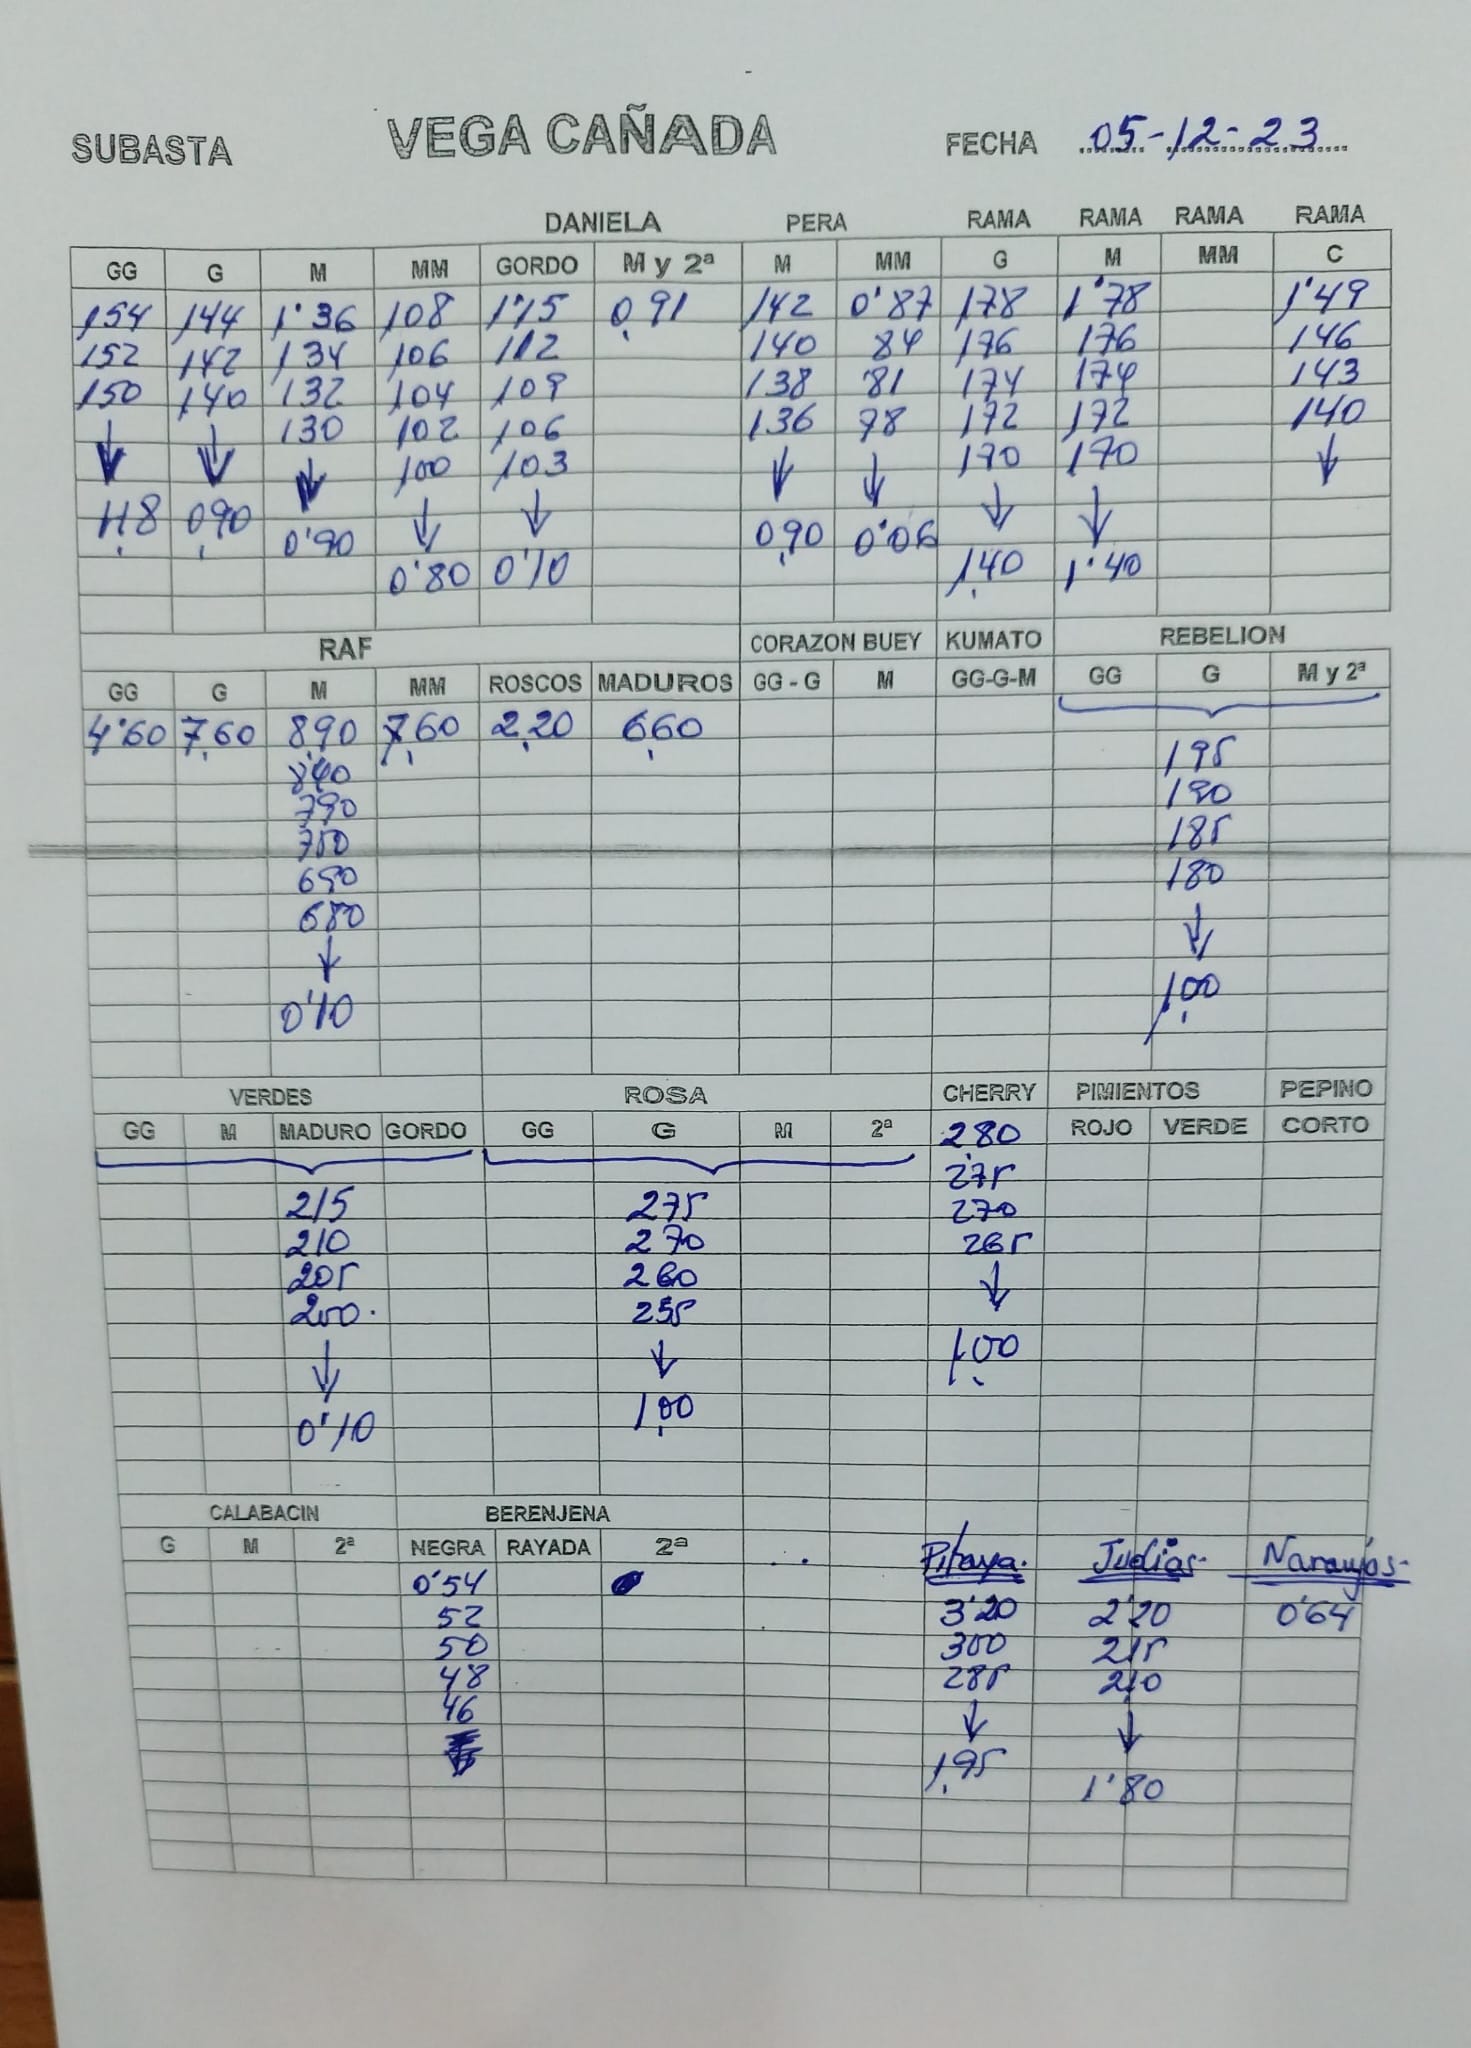 SUBASTA VEGA CAÑADA FECHA 05-12-23
DANIELA PERA RAMA RAMA RAMA RAMA
GG G M MM GORDO M y 2ª M MM G M MM C
154 144 1'36 108 1'15 0,91 142 0'87 178 1'78 1'49
152 142 134 106 112 140 84 176 176 146
150 140 132 104 109 138 81 174 174 143
130 102 106 136 78 172 172 140
100 103 170 170
1,18 0,90 0'90 0,90 0'06
0'80 0'10 1,40 1'40
RAF CORAZON BUEY KUMATO REBELION
GG G M MM ROSCOS MADUROS GG - G M GG-G-M GG G M y 2ª
4'60 7,60 8,90 7,60 2,20 6,60
840 195
790 190
750 185
690 180
680
0'10 1,00
VERDES ROSA CHERRY PIMIENTOS PEPINO
GG M MADURO GORDO GG G M 2ª 2,80 ROJO VERDE CORTO
275
215 275 270
210 270 265
205 260
200 255
1,00
0'10 1,00
CALABACIN BERENJENA
G M 2ª NEGRA RAYADA 2ª Pitaya. Judias- Naranjos-
0'54
52 3'20 2'20 0'64
50 300 215
48 285 210
46
1,95 1'80